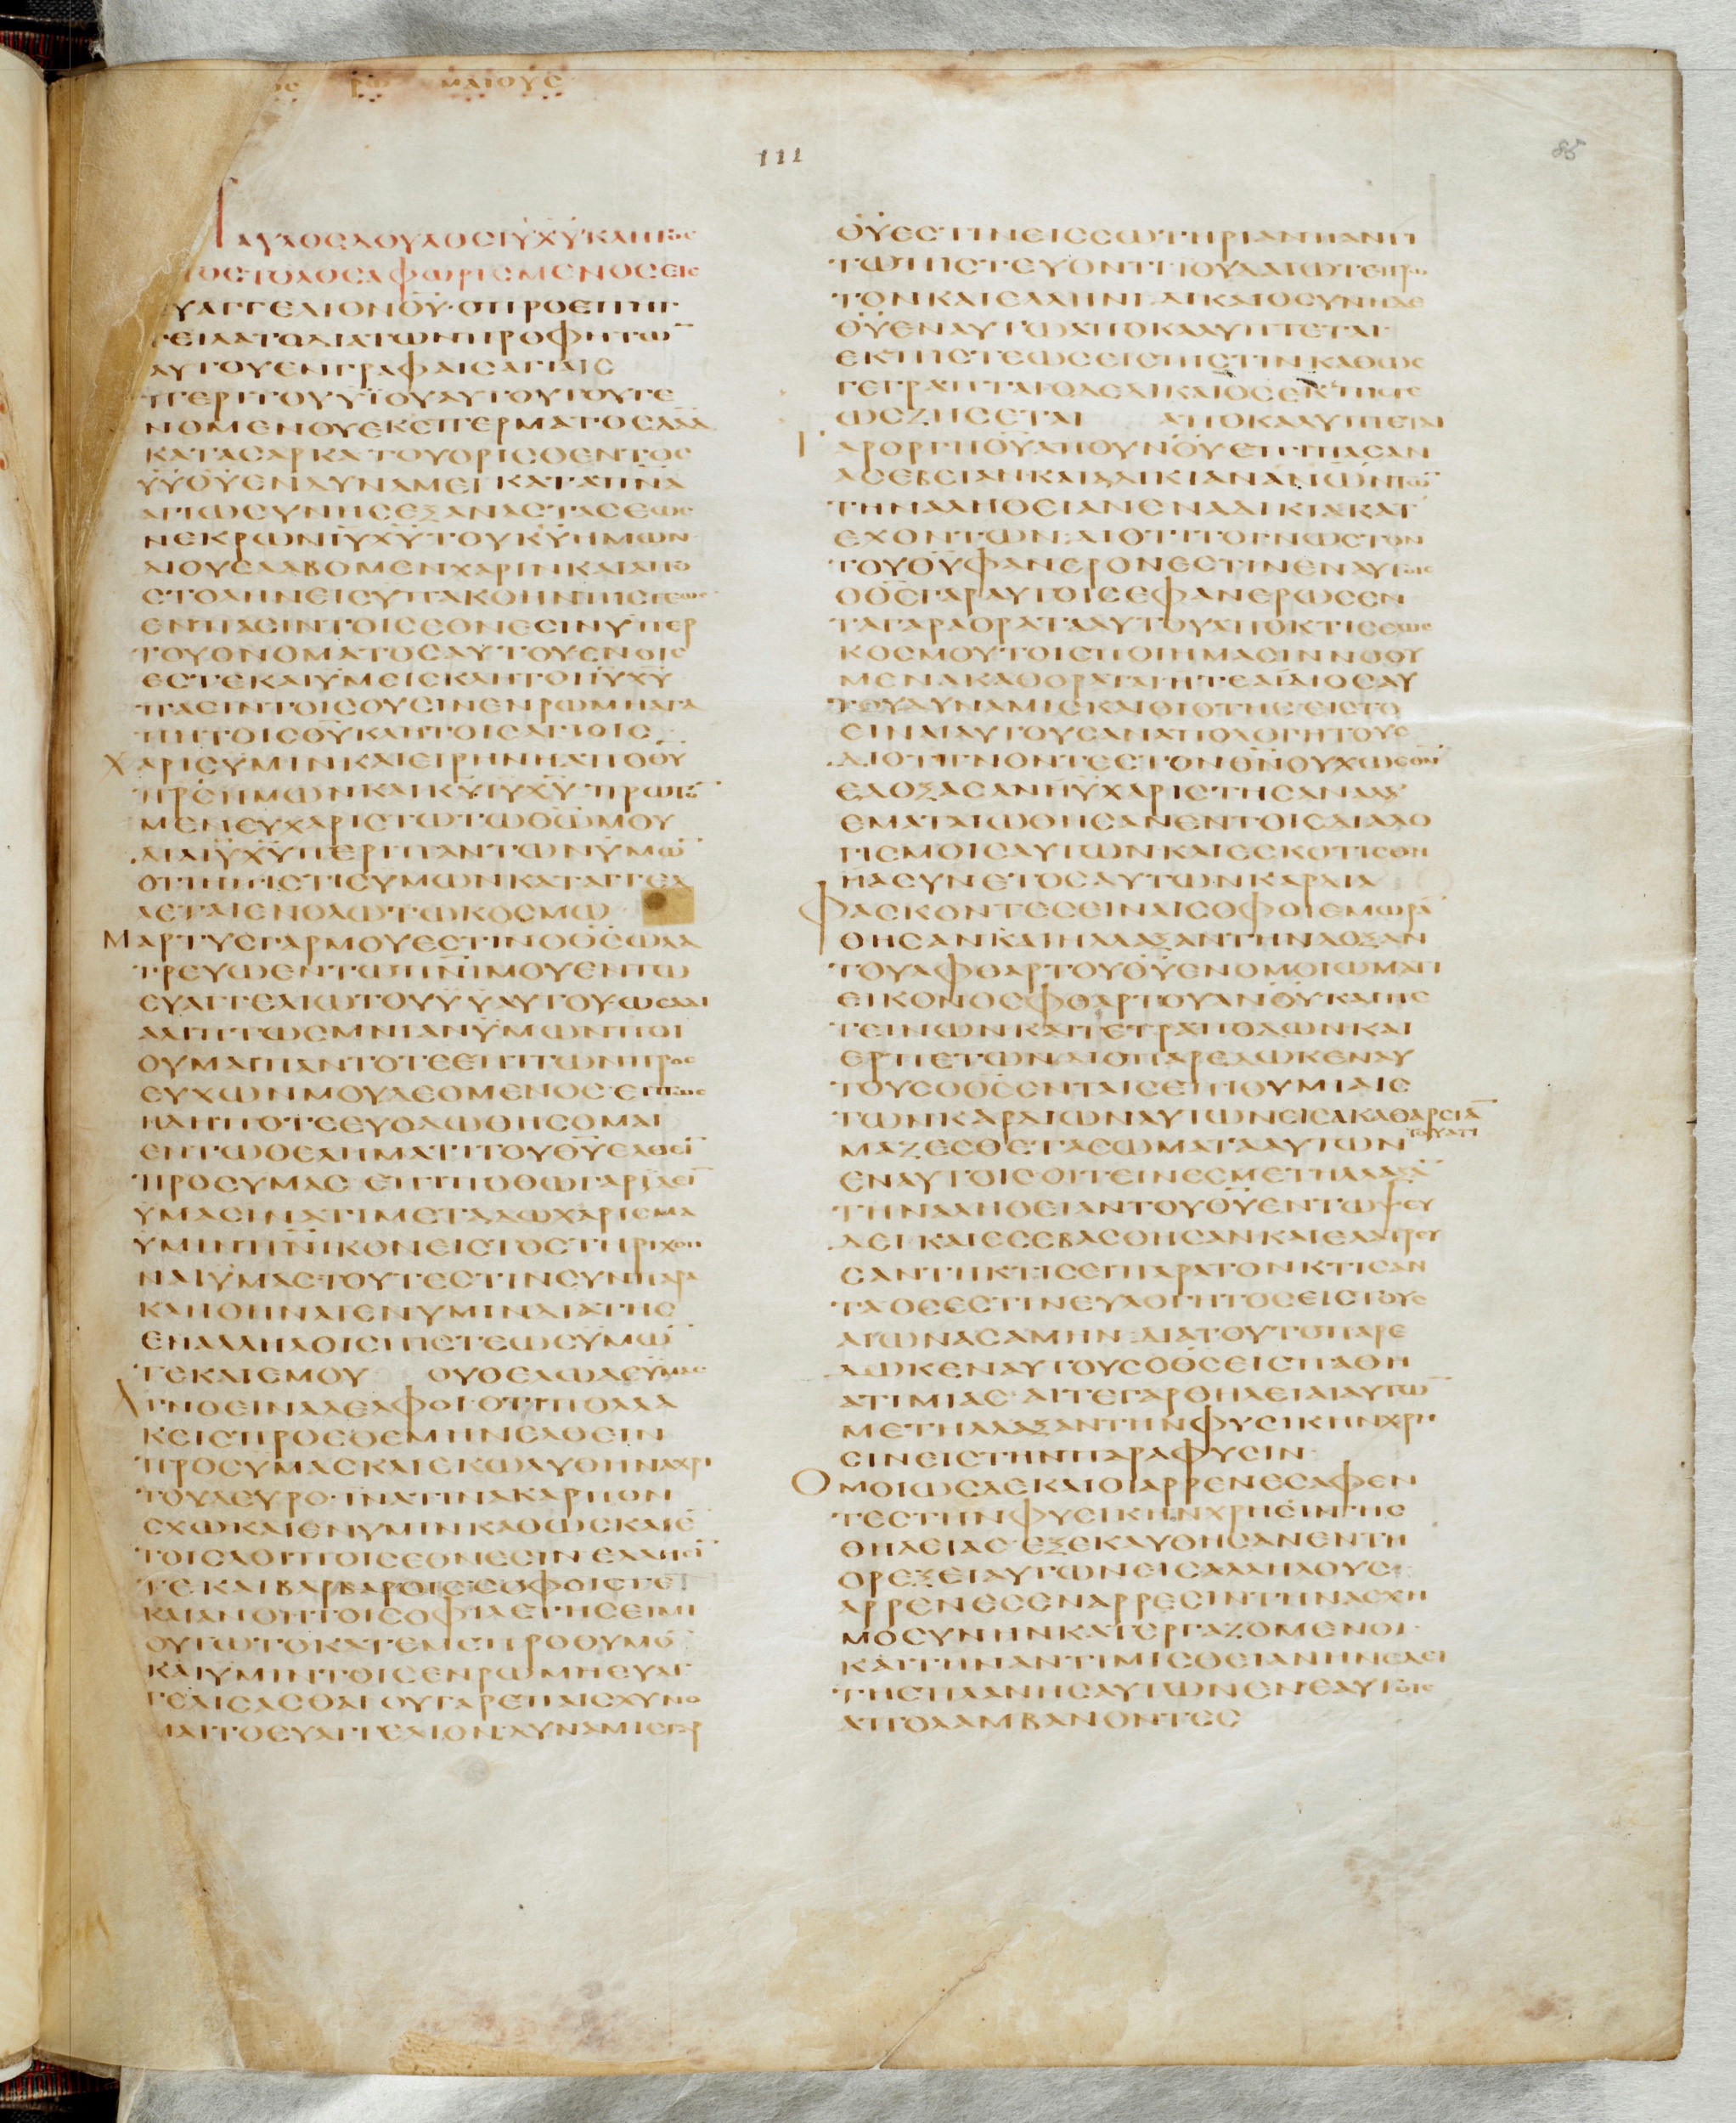 ΟϹ ΡΩ ΜΑΙΟΥϹ
111
85
ΠΑΥΛΟϹΔΟΥΛΟϹΙ̅Υ̅Χ̅Υ̅ΚΛΗΤΟϹ
ΠΟϹΤΟΛΟϹΑΦΩΡΙϹΜΕΝΟϹΕΙϹ
ΕΥΑΓΓΕΛΙΟΝΘ̅Υ̅·ΟΠΡΟΕΠΗΓ
ΓΕΙΛΑΤΟΔΙΑΤΩΝΠΡΟΦΗΤΩ̅
ΑΥΤΟΥΕΝΓΡΑΦΑΙϹΑΓΙΑΙϹ
ΠΕΡΙΤΟΥΥΪΟΥΑΥΤΟΥΤΟΥΓΕ
ΝΟΜΕΝΟΥΕΚϹΠΕΡΜΑΤΟϹΔΑ̅Δ̅
ΚΑΤΑϹΑΡΚΑΤΟΥΟΡΙϹΘΕΝΤΟϹ
Υ̅Υ̅Θ̅Υ̅ΕΝΔΥΝΑΜΕΙΚΑΤΑΠ̅Ν̅Α̅
ΑΓΙΩϹΥΝΗϹΕΞΑΝΑϹΤΑϹΕΩϹ
ΝΕΚΡΩΝΙ̅Υ̅Χ̅Υ̅ΤΟΥΚ̅Υ̅ΗΜΩΝ
ΔΙΟΥΕΛΑΒΟΜΕΝΧΑΡΙΝΚΑΙΑΠΟ
ϹΤΟΛΗΝΕΙϹΥΠΑΚΟΗΝΠΙϹΤΕΩϹ
ΕΝΠΑϹΙΝΤΟΙϹΕΘΝΕϹΙΝΥΠΕΡ
ΤΟΥΟΝΟΜΑΤΟϹΑΥΤΟΥΕΝΟΙϹ
ΕϹΤΕΚΑΙΥΜΕΙϹΚΛΗΤΟΙΙ̅Υ̅Χ̅Υ̅
ΠΑϹΙΝΤΟΙϹΟΥϹΙΝΕΝΡΩΜΗΑΓΑ
ΠΗΤΟΙϹΘ̅Υ̅ΚΛΗΤΟΙϹΑΓΙΟΙϹ
ΧΑΡΙϹΥΜΙΝΚΑΙΕΙΡΗΝΗΑΠΟΘ̅Υ̅
Π̅Ρ̅Ϲ̅ΗΜΩΝΚΑΙΚ̅Υ̅Ι̅Υ̅Χ̅Υ̅·ΠΡΩΤΟ̅
ΜΕΝΕΥΧΑΡΙϹΤΩΤΩΘ̅Ω̅ΜΟΥ
ΔΙΑΙ̅Υ̅Χ̅Υ̅ΠΕΡΙΠΑΝΤΩΝΥΜΩ̅
ΟΤΙΗΠΙϹΤΙϹΥΜΩΝΚΑΤΑΓΓΕΛ
ΛΕΤΑΙΕΝΟΛΩΤΩΚΟϹΜΩ
ΜΑΡΤΥϹΓΑΡΜΟΥΕϹΤΙΝΟΘ̅Ϲ̅ΩΛΑ
ΤΡΕΥΩΕΝΤΩΠ̅Ν̅Ι̅ΜΟΥΕΝΤΩ
ΕΥΑΓΓΕΛΙΩΤΟΥΥ̅Υ̅ΑΥΤΟΥ·ΩϹΑΔΙ
ΑΛΙΠΤΩϹΜΝΙΑΝΥΜΩΝΠΟΙ
ΟΥΜΑΙΠΑΝΤΟΤΕΕΠΙΤΩΝΠΡΟϹ
ΕΥΧΩΝΜΟΥΔΕΟΜΕΝΟϹ·ΕΙΠΩϹ
ΗΔΗΠΟΤΕΕΥΟΔΩΘΗϹΟΜΑΙ
ΕΝΤΩΘΕΛΗΜΑΤΙΤΟΥΘ̅Υ̅ΕΛΘΕΙ̅
ΠΡΟϹΥΜΑϹ ΕΠΙΠΟΘΩΓΑΡΪΔΕΙ̅
ΥΜΑϹΙΝΑΤΙΜΕΤΑΔΩΧΑΡΙϹΜΑ
ΥΜΙΝΠ̅Ν̅ΙΚΟΝΕΙϹΤΟϹΤΗΡΙΧΘΗ
ΝΑΙΥΜΑϹ·ΤΟΥΤΕϹΤΙΝϹΥΝΠΑΡΑ
ΚΛΗΘΗΝΑΙΕΝΥΜΙΝΔΙΑΤΗϹ
ΕΝΑΛΛΗΛΟΙϹΠΙϹΤΕΩϹΥΜΩ̅
ΤΕΚΑΙΕΜΟΥ ΟΥΘΕΛΩΔΕΥΜΑϹ
ΑΓΝΟΕΙΝΑΔΕΛΦΟΙ·ΟΤΙΠΟΛΛΑ
ΚΕΙϹΠΡΟΕΘΕΜΗΝΕΛΘΕΙΝ
ΠΡΟϹΥΜΑϹΚΑΙΕΚΩΛΥΘΗΝΑΧΡΙ
ΤΟΥΔΕΥΡΟ·ΙΝΑΤΙΝΑΚΑΡΠΟΝ
ϹΧΩΚΑΙΕΝΥΜΙΝΚΑΘΩϹΚΑΙΕ̅
ΤΟΙϹΛΟΙΠΟΙϹΕΘΝΕϹΙΝ·ΕΛΛΗϹΙ̅
ΤΕΚΑΙΒΑΡΒΑΡΟΙϹϹΟΦΟΙϹΤΕ
ΚΑΙΑΝΟΗΤΟΙϹΟΦΙΛΕΤΗϹΕΙΜΙ
ΟΥΤΩΤΟΚΑΤΕΜΕΠΡΟΘΥΜΟ̅
ΚΑΙΥΜΙΝΤΟΙϹΕΝΡΩΜΗΕΥΑΓ
ΓΕΛΙϹΑϹΘΑΙ·ΟΥΓΑΡΕΠΑΙϹΧΥΝΟ
ΜΑΙΤΟΕΥΑΓΓΕΛΙΟΝ·ΔΥΝΑΜΙϹΓΑΡ
Θ̅Υ̅ΕϹΤΙΝΕΙϹϹΩΤΗΡΙΑΝΠΑΝΤΙ
ΤΩΠΙϹΤΕΥΟΝΤΙΙΟΥΔΑΙΩΤΕΠΡΩ
ΤΟΝΚΑΙΕΛΛΗΝΙ·ΔΙΚΑΙΟϹΥΝΗΔΕ
Θ̅Υ̅ΕΝΑΥΤΩΑΠΟΚΑΛΥΠΤΕΤΑΙ
ΕΚΠΙϹΤΕΩϹΕΙϹΠΙϹΤΙΝΚΑΘΩϹ
ΓΕΓΡΑΠΤΑΙΟΔΕΔΙΚΑΙΟϹΕΚΠΙϹΤΕ
ΩϹΖΗϹΕΤΑΙ ΑΠΟΚΑΛΥΠΤΕΤΑΙ
ΓΑΡΟΡΓΗΘ̅Υ̅ΑΠΟΥΝ̅Ο̅Υ̅ΕΠΙΠΑϹΑΝ
ΑϹΕΒΕΙΑΝΚΑΙΑΔΙΚΙΑΝΑ̅Ν̅Ω̅Ν̅ΤΩ̅
ΤΗΝΑΛΗΘΕΙΑΝΕΝΑΔΙΚΙΑΚΑΤ
ΕΧΟΝΤΩΝ·ΔΙΟΤΙΤΟΓΝΩϹΤΟΝ
ΤΟΥΘ̅Υ̅ΦΑΝΕΡΟΝΕϹΤΙΝΕΝΑΥΤΟΙϹ
ΟΘ̅Ϲ̅ΓΑΡΑΥΤΟΙϹΕΦΑΝΕΡΩϹΕΝ
ΤΑΓΑΡΑΟΡΑΤΑΑΥΤΟΥΑΠΟΚΤΙϹΕΩϹ
ΚΟϹΜΟΥΤΟΙϹΠΟΙΗΜΑϹΙΝΝΟΟΥ
ΜΕΝΑΚΑΘΟΡΑΤΑΙΗΤΕΑΪΔΙΟϹΑΥ
ΤΟΥΔΥΝΑΜΙϹΚΑΙΘΙΟΤΗϹ·ΕΙϹΤΟ
ΕΙΝΑΙΑΥΤΟΥϹΑΝΑΠΟΛΟΓΗΤΟΥϹ
ΔΙΟΤΙΓΝΟΝΤΕϹΤΟΝΘ̅Ν̅ΟΥΧΩϹΘ̅Ν̅
ΕΔΟΞΑϹΑΝΗΥΧΑΡΙϹΤΗϹΑΝΑΛΛ
ΕΜΑΤΑΙΩΘΗϹΑΝΕΝΤΟΙϹΔΙΑΛΟ
ΓΙϹΜΟΙϹΑΥΤΩΝΚΑΙΕϹΚΟΤΙϹΘΗ
ΗΑϹΥΝΕΤΟϹΑΥΤΩΝΚΑΡΔΙΑ
ΦΑϹΚΟΝΤΕϹΕΙΝΑΙϹΟΦΟΙΕΜΩΡΑ̅
ΘΗϹΑΝΚΑΙΗΛΛΑΞΑΝΤΗΝΔΟΞΑΝ
ΤΟΥΑΦΘΑΡΤΟΥΘ̅Υ̅ΕΝΟΜΟΙΩΜΑΤΙ
ΕΙΚΟΝΟϹΦΘΑΡΤΟΥΑ̅Ν̅Ο̅Υ̅ΚΑΙΠΕ
ΤΕΙΝΩΝΚΑΙΤΕΤΡΑΠΟΔΩΝΚΑΙ
ΕΡΠΕΤΩΝ·ΔΙΟΠΑΡΕΔΩΚΕΝΑΥ
ΤΟΥϹΟΘ̅Ϲ̅ΕΝΤΑΙϹΕΠΙΘΥΜΙΑΙϹ
ΤΩΝΚΑΡΔΙΩΝΑΥΤΩΝΕΙϹΑΚΑΘΑΡϹΙΑ̅
ΤΟΥΑΤΙ
ΜΑΖΕϹΘΕΤΑϹΩΜΑΤΑΑΥΤΩΝ
ΕΝΑΥΤΟΙϹ·ΟΙΤΕΙΝΕϹΜΕΤΗΛΛΑΞΑ̅
ΤΗΝΑΛΗΘΕΙΑΝΤΟΥΘ̅Υ̅ΕΝΤΩΨΕΥ
ΔΕΙ·ΚΑΙΕϹΕΒΑϹΘΗϹΑΝΚΑΙΕΛΑΤΡΕΥ
ϹΑΝΤΗΚΤΙϹΕΙΠΑΡΑΤΟΝΚΤΙϹΑΝ
ΤΑΟϹΕϹΤΙΝΕΥΛΟΓΗΤΟϹΕΙϹΤΟΥϹ
ΑΙΩΝΑϹΑΜΗΝ·ΔΙΑΤΟΥΤΟΠΑΡΕ
ΔΩΚΕΝΑΥΤΟΥϹΟΘ̅Ϲ̅ΕΙϹΠΑΘΗ
ΑΤΙΜΙΑϹ·ΑΙΤΕΓΑΡΘΗΛΕΙΑΙΑΥΤΩ̅
ΜΕΤΗΛΛΑΞΑΝΤΗΝΦΥϹΙΚΗΝΧΡΗ
ϹΙΝΕΙϹΤΗΝΠΑΡΑΦΥϹΙΝ
ΟΜΟΙΩϹΔΕΚΑΙΟΙΑΡΡΕΝΕϹΑΦΕΝ
ΤΕϹΤΗΝΦΥϹΙΚΗΝΧΡΗϹΙΝΤΗϹ
ΘΗΛΕΙΑϹ·ΕΞΕΚΑΥΘΗϹΑΝΕΝΤΗ
ΟΡΕΞΕΙΑΥΤΩΝΕΙϹΑΛΛΗΛΟΥϹ
ΑΡΡΕΝΕϹΕΝΑΡΡΕϹΙΝΤΗΝΑϹΧΗ
ΜΟϹΥΝΗΝΚΑΤΕΡΓΑΖΟΜΕΝΟΙ·
ΚΑΙΤΗΝΑΝΤΙΜΙϹΘΕΙΑΝΗΝΕΔΕΙ
ΤΗϹΠΛΑΝΗϹΑΥΤΩΝΕΝΕΑΥΤΟΙϹ
ΑΠΟΛΑΜΒΑΝΟΝΤΕϹ